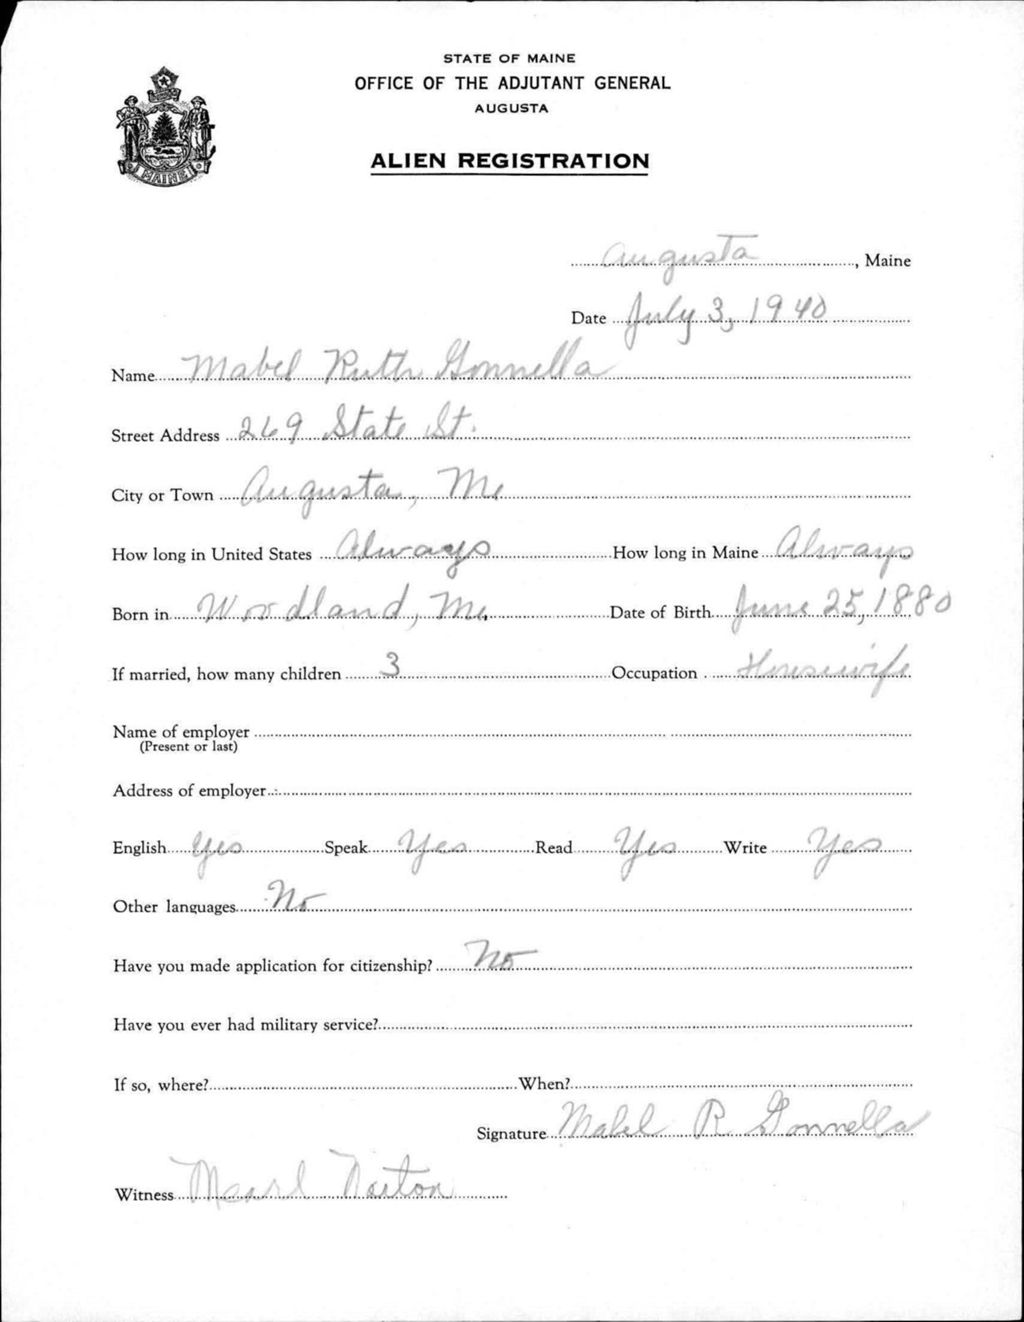 STATE OF MAINE
OFFICE OF THE ADJUTANT GENERAL
AUGUSTA
ALIEN REGISTRATION
MAINE
Augusta, Maine
Date July 3, 1940
Name Mabel Ruth Gonnella
Street Address 269 State St.
City or Town Augusta, Me
How long in United States Always How long in Maine Always
Born in Woodland, Me. Date of Birth June 25, 1880
If married, how many children 3 Occupation Housewife
Name of employer
(Present or last)
Address of employer
English Yes Speak Yes Read Yes Write Yes
Other languages No
Have you made application for citizenship? No
Have you ever had military service?
If so, where? When?
Signature Mabel R Gonnella
Witness Mearl Norton